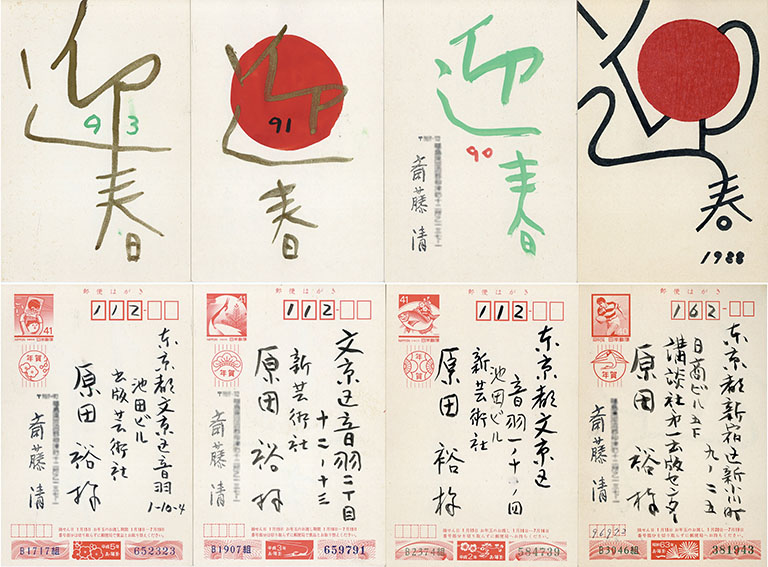 迎春
93
迎春
91
迎春
90
斎藤 清
迎春
1988
郵便はがき
41
NIPPON 日本郵便
112
年賀
東京都文京区音羽
1-10-4
池田ビル
出版芸術社
原田 裕 様
斎藤 清
B1717組
平成5年
お年玉
652323
郵便はがき
41
NIPPON 日本郵便
112
年賀
文京区音羽二丁目
十二ノ十三
新芸術社
原田 裕 様
斎藤 清
B1907組
平成3年
お年玉
659791
郵便はがき
41
NIPPON 日本郵便
112
年賀
東京都文京区
音羽一ノ十ノ四
池田ビル
新芸術社
原田 裕 様
斎藤 清
B2374組
平成2年
お年玉
584739
郵便はがき
40
NIPPON 日本郵便
162
年賀
東京都新宿区新小川町
九ノ二五
日商ビル五F
講談社第一出版センター
原田 裕 様
斎藤 清
B3946組
昭和63年
お年玉
381943